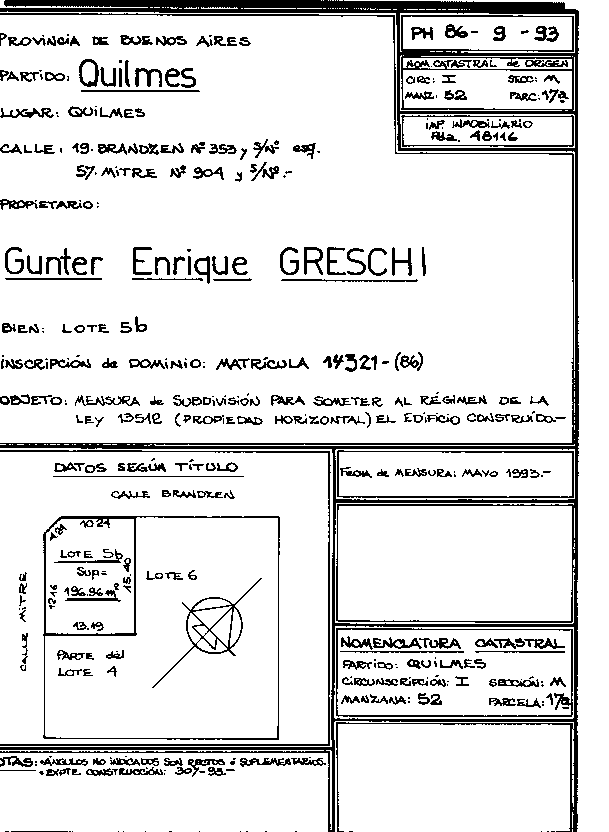 PROVINCIA DE BUENOS AIRES
PARTIDO: Quilmes
LUGAR: QUILMES
CALLE: 19. BRANDZEN Nº 353 y S/Nº esq.
57. MITRE Nº 904 y S/Nº.-
PROPIETARIO:
Gunter Enrique GRESCHI
BIEN: LOTE 5b
INSCRIPCIÓN de DOMINIO: MATRÍCULA 14321-(86)
OBJETO: MENSURA de SUBDIVISIÓN PARA SOMETER AL RÉGIMEN DE LA
LEY 13512 (PROPIEDAD HORIZONTAL) EL EDIFICIO CONSTRUÍDO.-
PH 86- 9 -93
NOM. CATASTRAL de ORIGEN
CIRC: I SECC: M
MANZ: 52 PARC: 17a
IMP. INMOBILIARIO
Pda. 48116
DATOS SEGÚN TÍTULO
CALLE BRANDZEN
4.24 10.24
LOTE 5b
Sup=
196.96 m²
12.16
15.40
13.19
LOTE 6
CALLE MITRE
PARTE del
LOTE 4
FECHA de MENSURA: MAYO 1993.-
NOMENCLATURA CATASTRAL
PARTIDO: QUILMES
CIRCUNSCRIPCIÓN: I SECCIÓN: M
MANZANA: 52 PARCELA: 17a
OTAS: •ÁNGULOS NO INDICADOS SON RECTOS ó SUPLEMENTARIOS.
•EXPTE. CONSTRUCCIÓN: 307-93.-